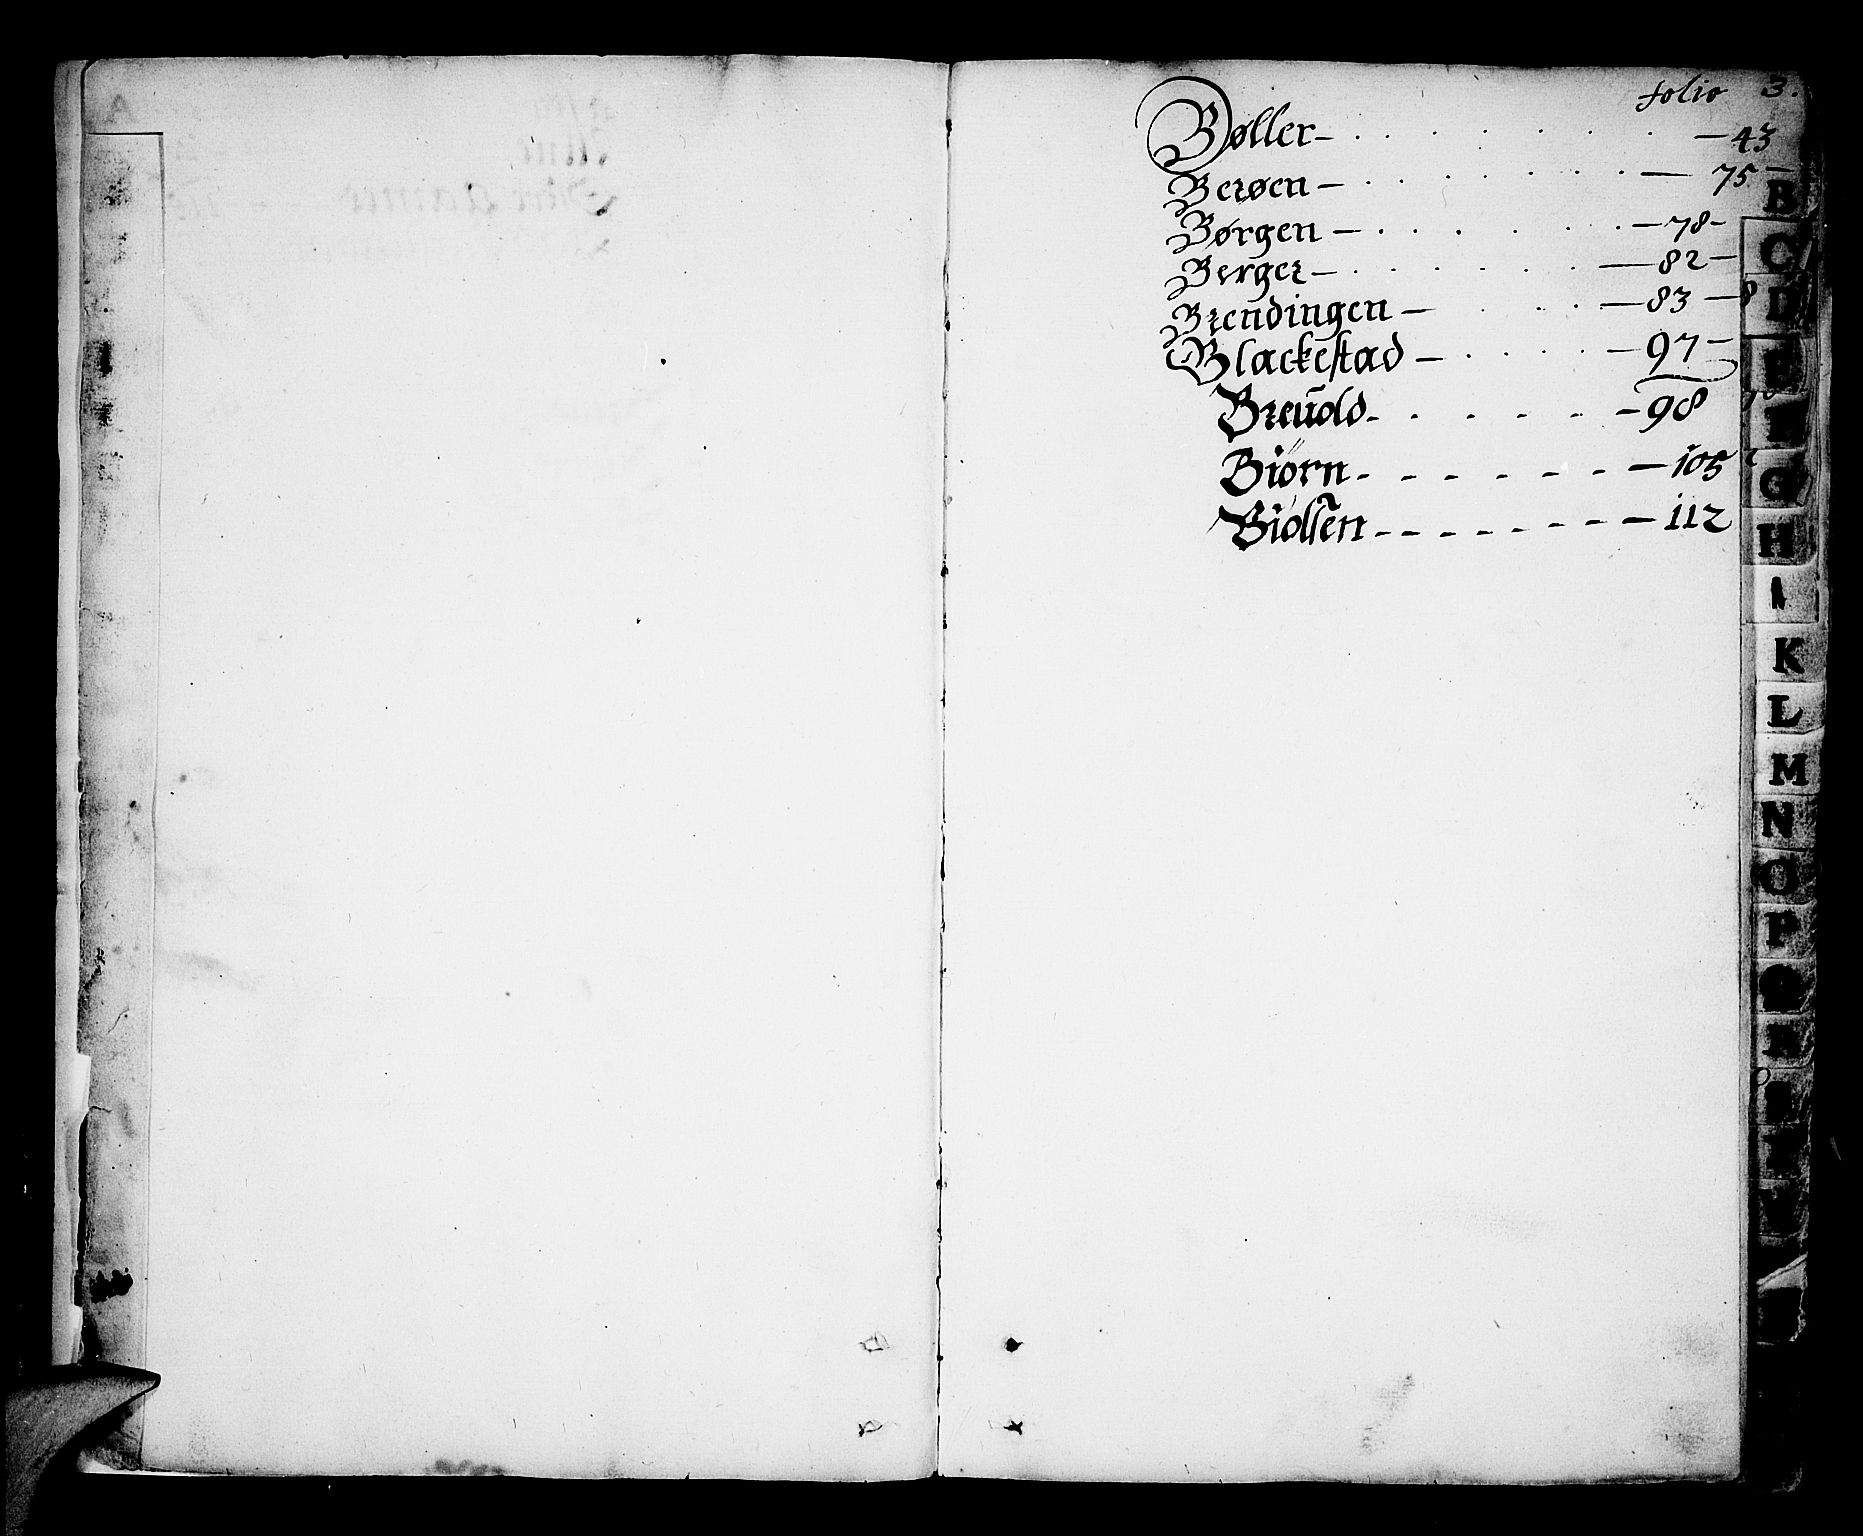 folio 3.
Bøller - . . . . . . . . - 43
Berøen - . . . . . . . - 75 -
Børgen - . . . . . - 78 -
Berger - . . . . . . - 82 -
Brendingen - . . . . - 83 -
Blackestad - . . . . - 97 -
Breuold - . . . . . - 98
Biørn - - - - - - - 105
Biølsen - - - - - - - - 112
B
C
D
G
H
I
K
L
M
N
O
P
Q
R